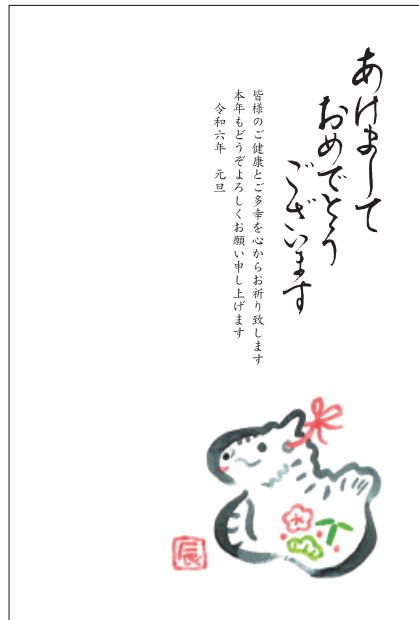 あけまして
おめでとう
ございます
皆様のご健康とご多幸を心からお祈り致します
本年もどうぞよろしくお願い申し上げます
令和六年　元旦
辰